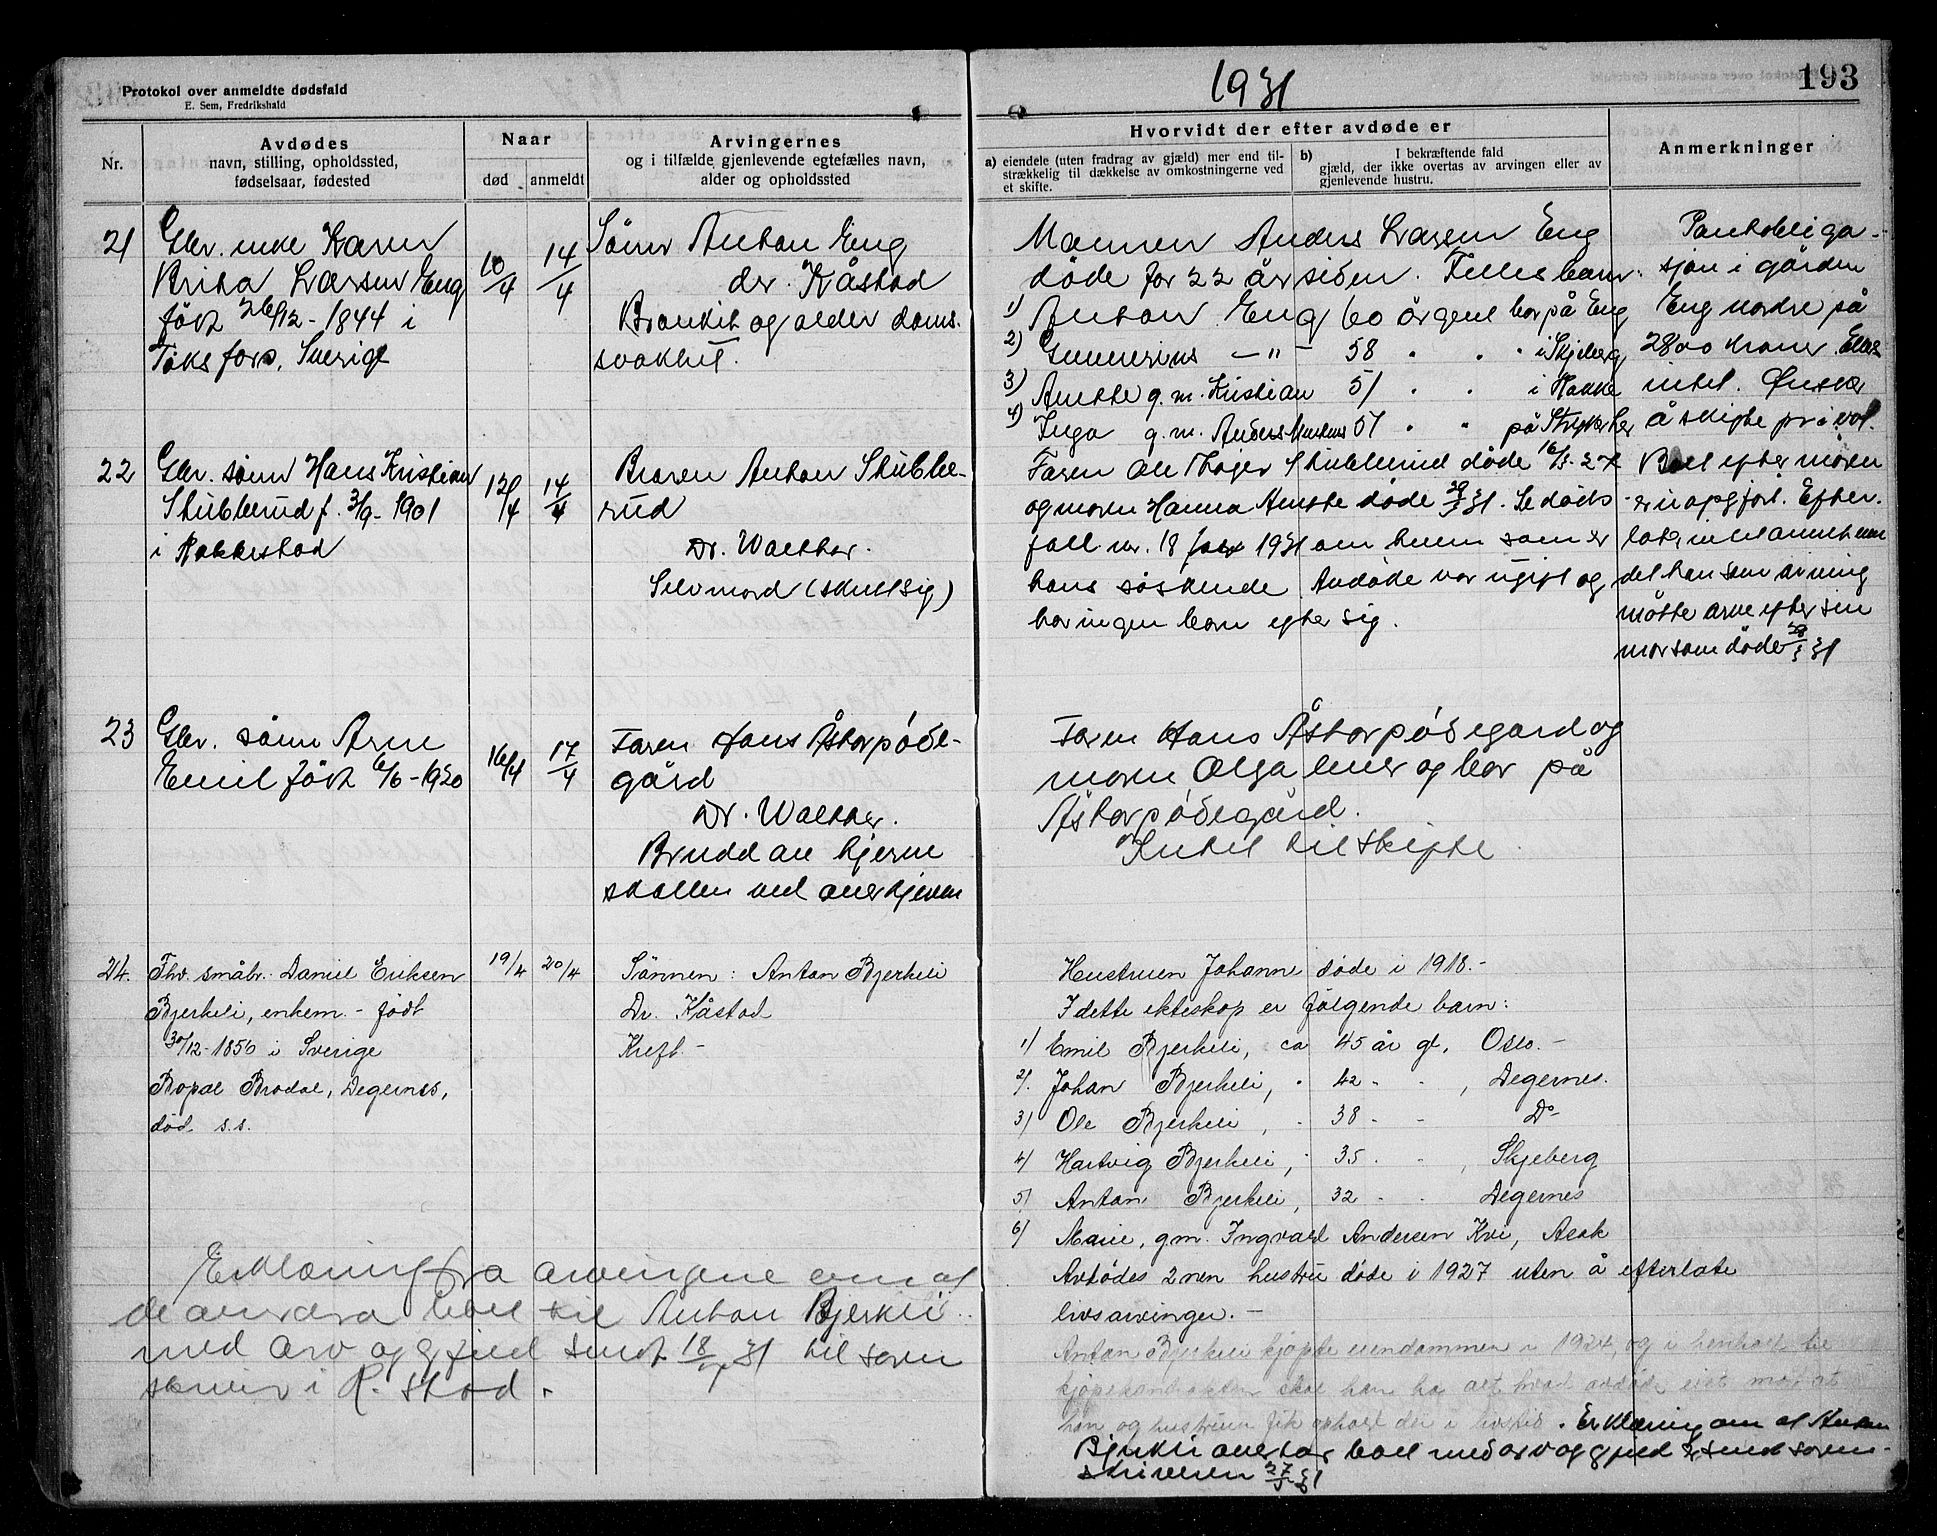 Protokol over anmeldte dødsfald
E. Sem, Fredrikshald
1931
193
Nr.
Avdødes
navn, stilling, opholdssted,
fødselsaar, fødested
Naar
død
anmeldt
Arvingernes
og i tilfælde gjenlevende egtefælles navn,
alder og opholdssted
Hvorvidt der efter avdøde er
a) eiendele (uten fradrag av gjæld) mer end til-
strækkelig til dækkelse av omkostningerne ved
et skifte.
b) I bekræftende fald
gjæld, der ikke overtas av arvingen eller av
gjenlevende hustru.
Anmerkninger
21
Gbr. enke Karen
Brita Larsen Eng
født 26/12-1844 i
Töksfors, Sverige
10/4
14/4
Sønn Anton Eng
dr. Kåstad
Bronkit og alderdoms-
svakhet.
Mannen Anders Larsen Eng
døde for 22 år siden. Felles barn:
1) Anton Eng 60 år gml bor på Eng
2) Gunnerius -"- 58 " " " i Skjeberg
3) Anette g.m. Kristian 51 " " i Hakke
4) Inga g.m. Anders 51 " " på
Pantobliga-
sjon i gården
Eng nordre på
2800 kroner. Ellers
intet. Ønsker
å skifte privat.
22
Gbr. sønn Hans Kristian
Stubberud f. 3/9-1901
i Rakkestad
12/4
14/4
Broren Anton Stubbe-
rud
Dr. Walther.
Selvmord (skutt sig)
Faren Ole Stubberud døde 16/3-27
og moren Hanna Anette døde 29/3 31. Se døds-
fall nr. 18 for 1931 om hvem som er
hans søskende. Avdøde var ugift og
har ingen barn efter sig.
Boet efter moren
er uopgjort. Efter-
later intet annet enn
det han som arving
måtte arve efter sin
mor som døde 29/3 31
23
Gbr. sønn Arne
Emil født 6/6-1920
16/4
17/4
Faren Hans Åstorpøde-
gård
Dr. Walther.
Brudd av hjerne
skallen ved overkjøren
Faren Hans Åstorpødegard og
moren Olga lever og bor på
Åstorpødegård.
Intet til skifte.
24.
Fhv. småbr. Daniel Eriksen
Bjerkeli, enkem. - født
30/12-1856 i Sverige
Bopæl Brodal, Degernes,
død s.s.
19/4
20/4
Sønnen: Anton Bjerkeli
Dr. Kåstad
Kreft -
Hustruen Johanne døde i 1918.-
I dette ekteskap er følgende barn:
1) Emil Bjerkeli, ca 45 år gl, Oslo.-
2) Johan Bjerkeli, " 42 - - , Degernes.
3) Ole Bjerkeli, " 38 - - Do-
4) Hartvig Bjerkeli, " 35 - - , Skjeberg
5) Anton Bjerkeli, 32 - - Degernes
6) Marie, gm. Ingvald Andersen Kvi, Asak
Avdødes 2nen hustru døde i 1927 uten å efterlate
livsarvinger. -
Anton Bjerkeli kjøpte eiendommen i 1924, og i henhold til
kjøpekontrakten skal han ha alt hvad avdøde eiet mot at
han og hustruen fik ophold der i livstid. Erklæring om at Anton
Bjerkli overtar boet med arv og gjeld er sendt soren-
skriveren 27/5 31
Erklæring fra arvingene om at
de overdra boet til Anton Bjerkli
med arv og gjeld sendt 18/ 31 til soren
skriver i R.stad.